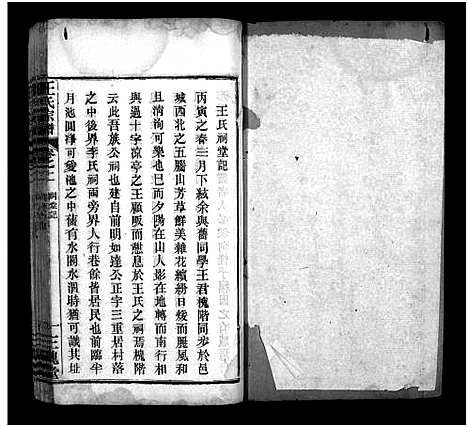 王氏祠堂記
丙寅之春三月下絃余與舊同學王君槐階同步於邑
城西北之五騰山芳草鮮美雜花繽紛日緩而麗風和
且清洵可樂也巳而夕陽在山人影在地轉而南行相
與過十字涼亭之王顧畈而憩息於王氏之祠焉槐階
云此吾族公祠也建自前明如達公正字三重居村落
之中後界李氏祠兩旁界人行巷餘皆居民也前臨半
月池圓淨可愛池之中舊有水閣水涸時猶可識其址
王氏宗譜
祠堂記
三槐堂